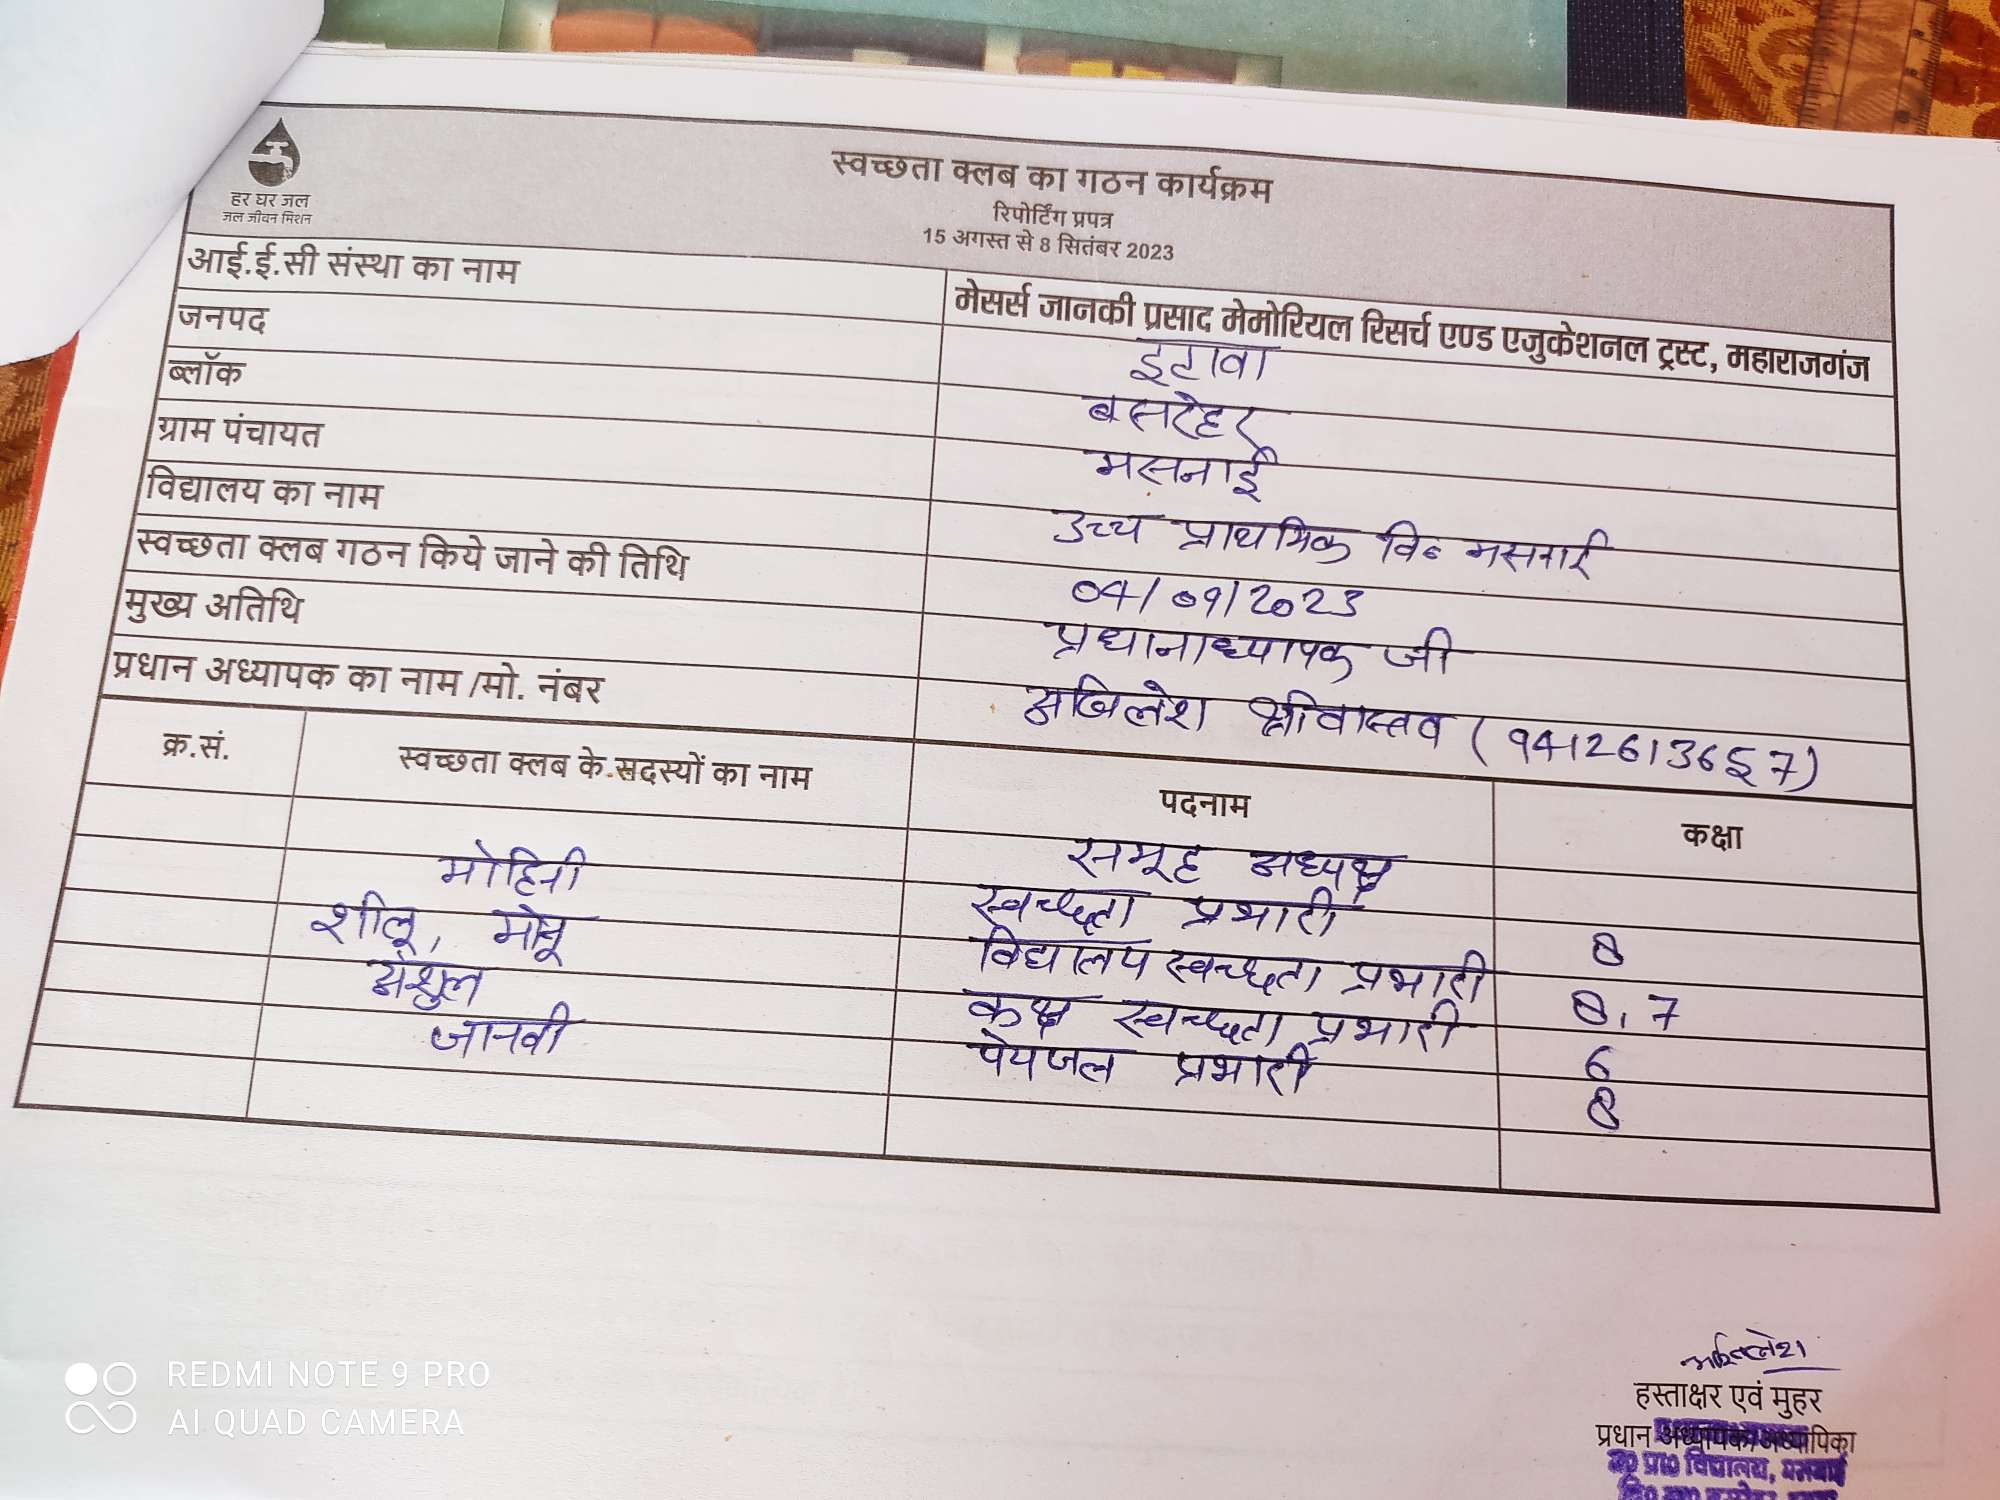 हर घर जल
जल जीवन मिशन
स्वच्छता क्लब का गठन कार्यक्रम
रिपोर्टिंग प्रपत्र
15 अगस्त से 8 सितंबर 2023
आई.ई.सी संस्था का नाम मेसर्स जानकी प्रसाद मेमोरियल रिसर्च एण्ड एजुकेशनल ट्रस्ट, महाराजगंज
जनपद इटावा
ब्लॉक बसरेहर
ग्राम पंचायत मसनाई
विद्यालय का नाम उच्च प्राथमिक वि० मसनाई
स्वच्छता क्लब गठन किये जाने की तिथि 04/09/2023
मुख्य अतिथि प्रधानाध्यापक जी
प्रधान अध्यापक का नाम /मो. नंबर अखिलेश श्रीवास्तव (9412613657)
क्र.सं. स्वच्छता क्लब के सदस्यों का नाम पदनाम कक्षा
मोहिनी समूह अध्यक्ष 8
शीलू, मोनू स्वच्छता प्रभारी 8, 7
अंशुल विद्यालय स्वच्छता प्रभारी 6
जानवी कक्ष स्वच्छता प्रभारी 8
पेयजल प्रभारी
अखिलेश
हस्ताक्षर एवं मुहर
प्रधान अध्यापक/अध्यापिका
उ० प्रा० विद्यालय, मसनाई
REDMI NOTE 9 PRO
AI QUAD CAMERA